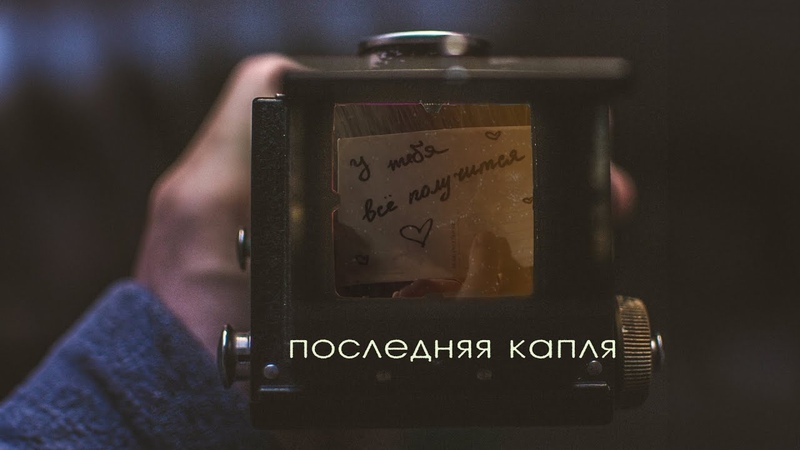 у тебя
всё получится
последняя капля